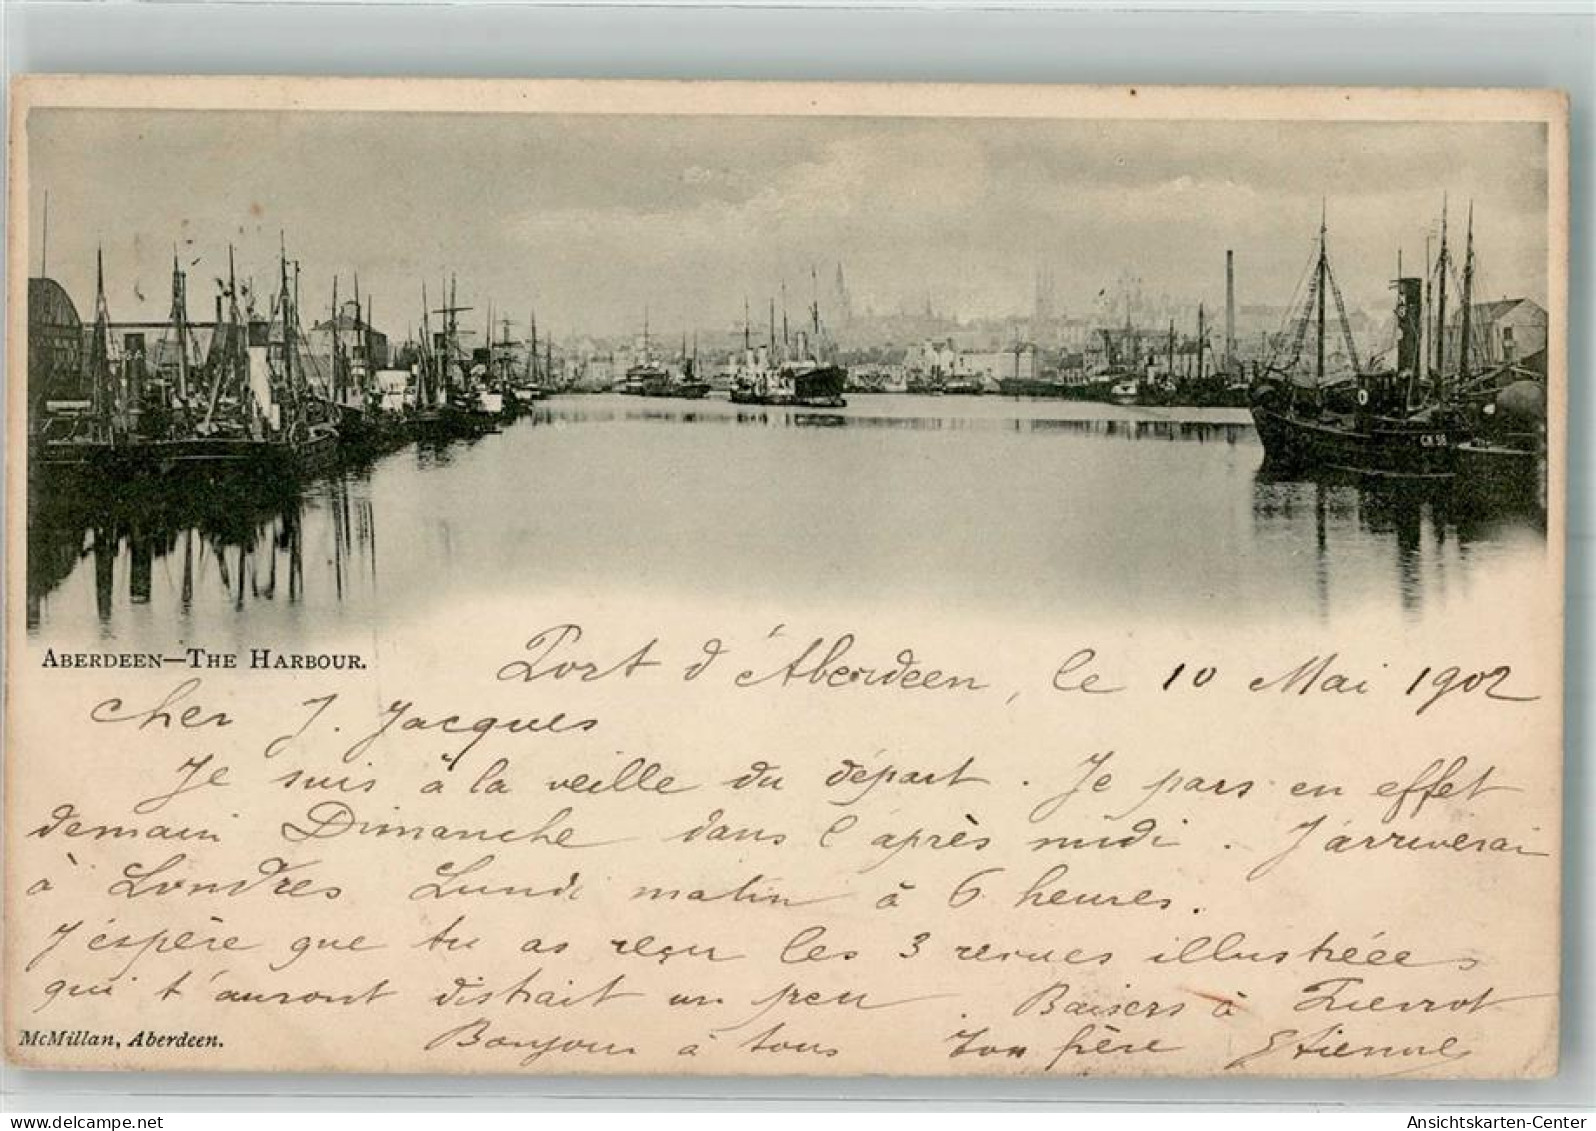 CN 58
ABERDEEN—THE HARBOUR.
Port d'Aberdeen, le 10 Mai 1902
cher J. Jacques
Je suis à la veille du départ. Je pars en effet
demain Dimanche dans l'après midi. J'arriverai
à Londres Lundi matin à 6 heures.
J'éspère que tu as reçu les 3 revues illustrées
qui t'auront distrait un peu. Baisers à Pierrot
Bonjour à tous Ton frère Etienne
McMillan, Aberdeen.
Ansichtskarten-Center